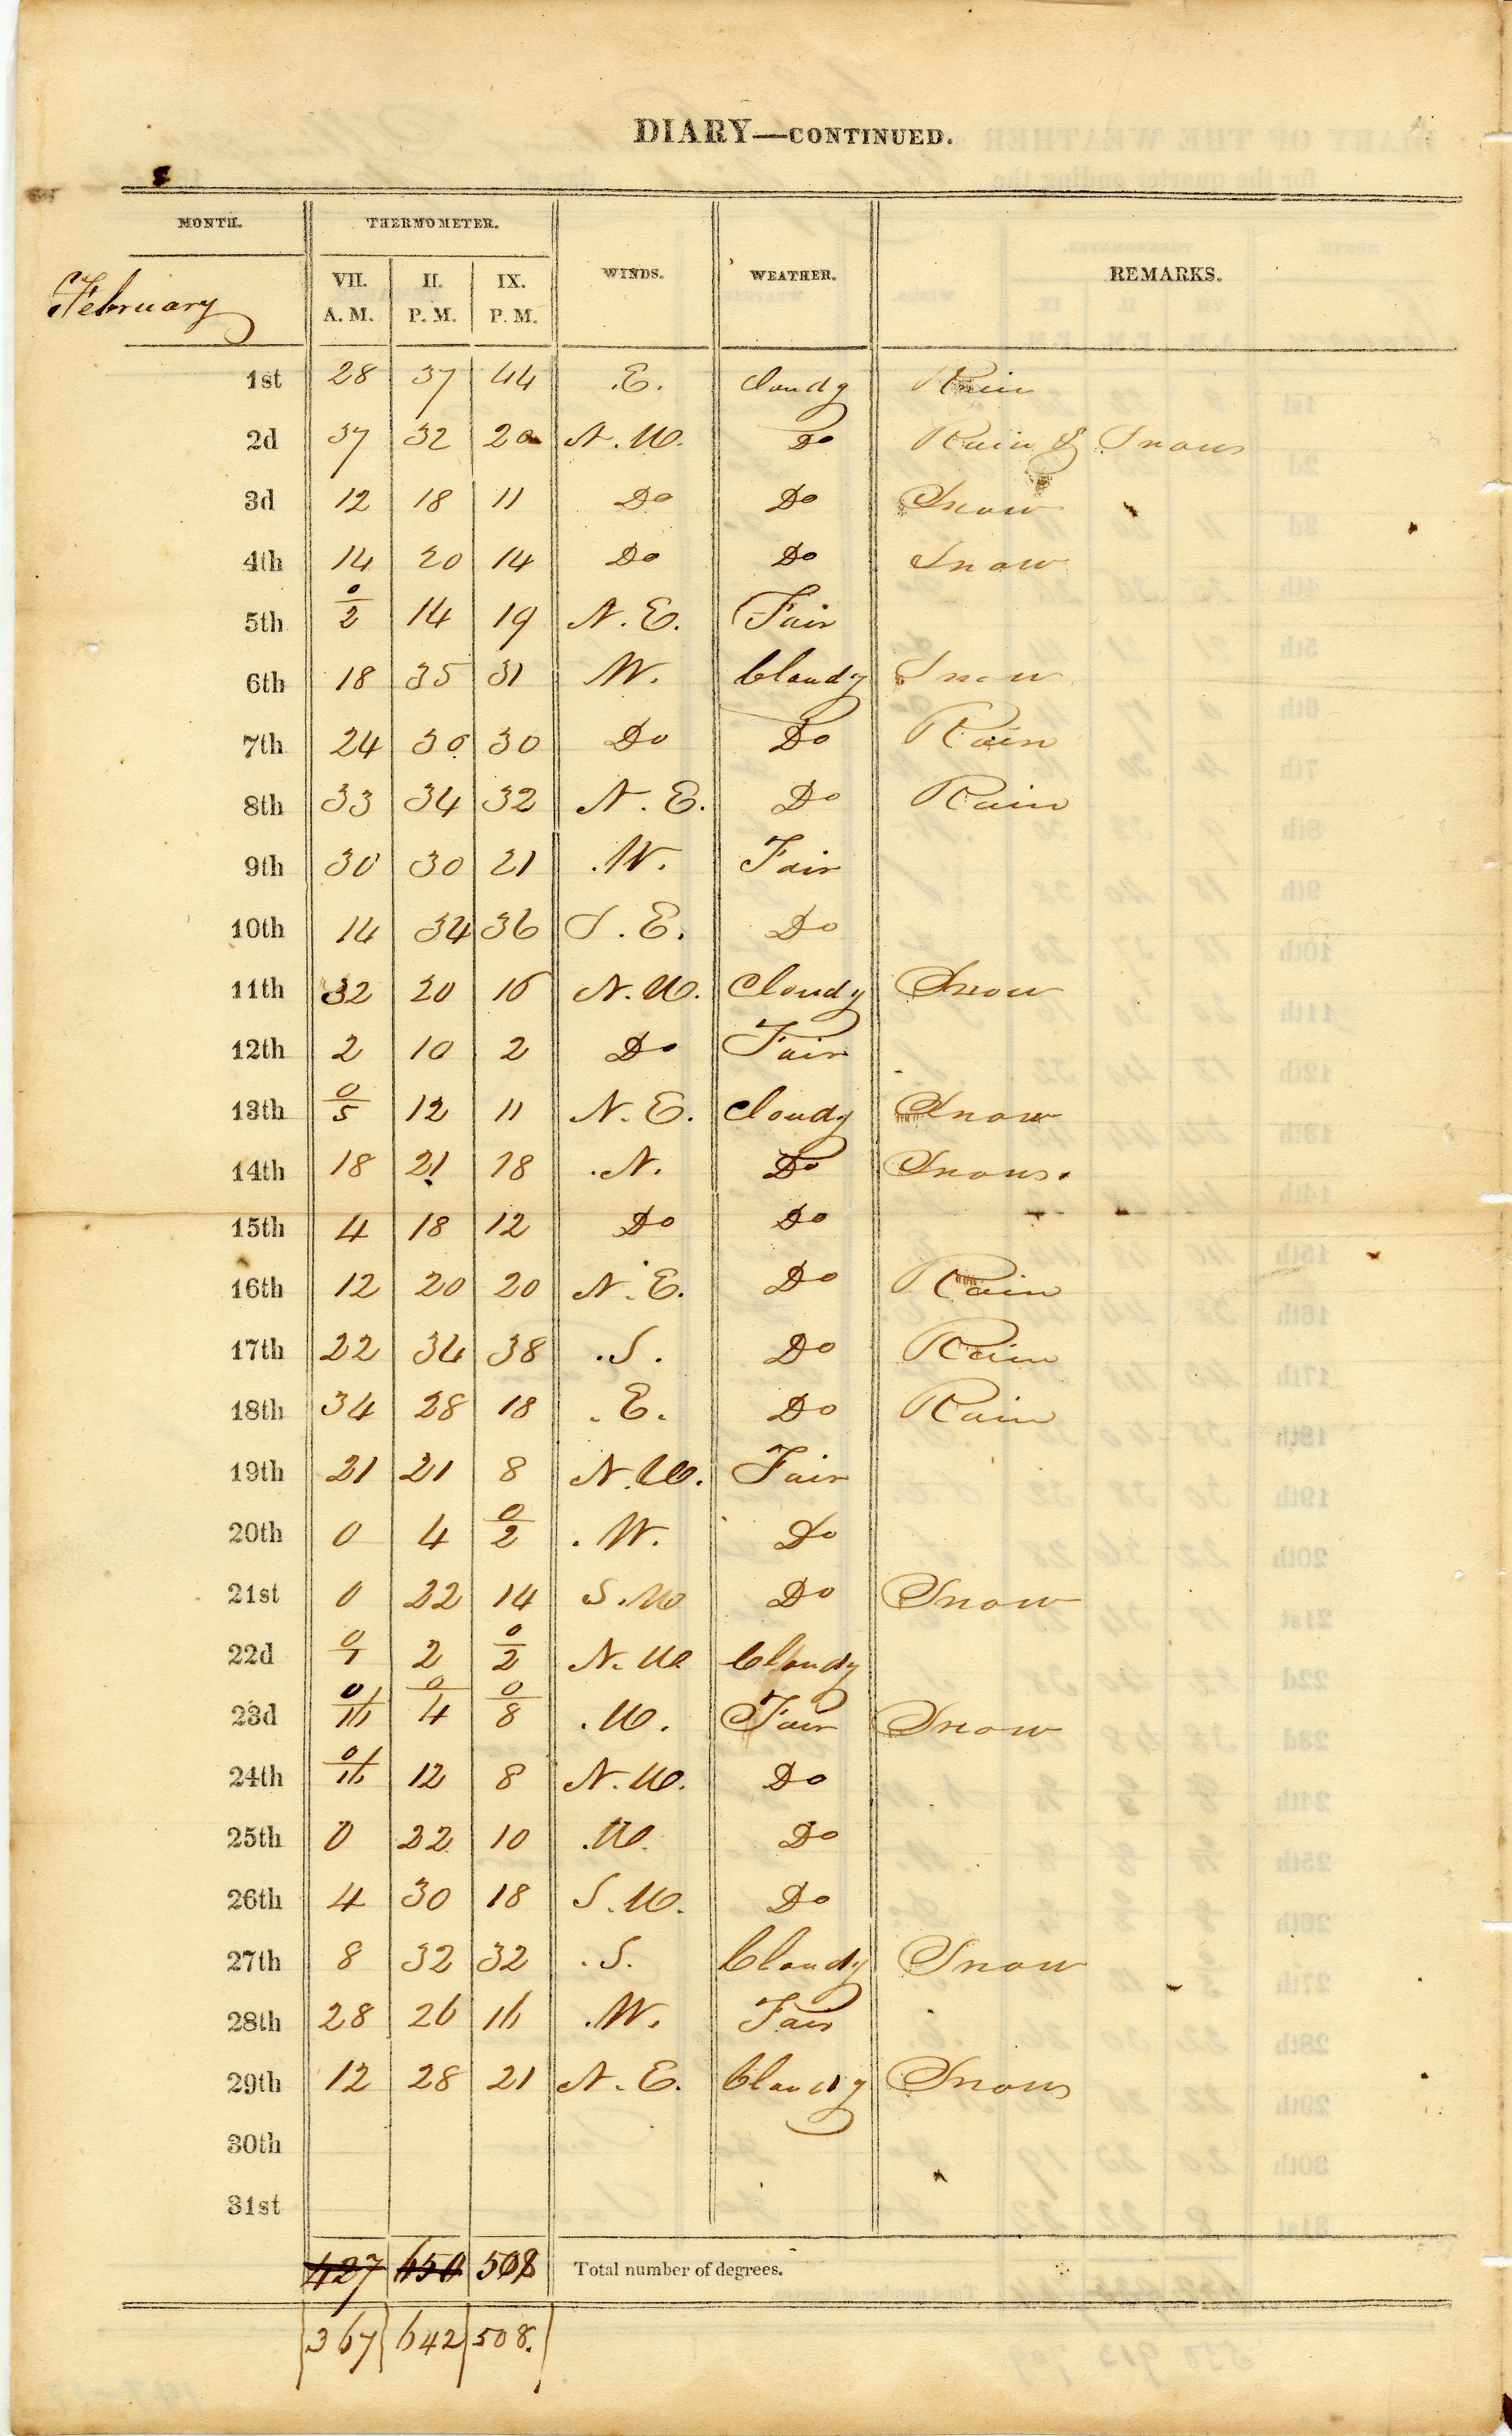 DIARY—CONTINUED.
MONTH. THERMOMETER. WINDS. WEATHER. REMARKS.
February VII. A. M. II. P. M. IX. P. M.
1st 28 37 44 .E. Cloudy Rain
2d 37 32 20 N.W. Do Rain & Snow
3d 12 18 11 Do Do Snow
4th 14 20 14 Do Do Snow
5th 0/2 14 19 N.E. Fair
6th 18 35 31 W. Cloudy Snow
7th 24 30 30 Do Do Rain
8th 33 34 32 N.E. Do Rain
9th 30 30 21 .W. Fair
10th 14 34 36 S.E. Do
11th 32 20 16 N.W. Cloudy Snow
12th 2 10 2 Do Fair
13th 0/5 12 11 N.E. Cloudy Snow
14th 18 21 18 .N. Do Snow.
15th 4 18 12 Do Do
16th 12 20 20 N.E. Do Rain
17th 22 34 38 .S. Do Rain
18th 34 28 18 .E. Do Rain
19th 21 21 8 N.W. Fair
20th 0 4 0/2 .W. Do
21st 0 22 14 S.W Do Snow
22d 0/1 2 0/2 N.W Cloudy
23d 0/16 0/4 0/8 .W. Fair Snow
24th 0/16 12 8 N.W. Do
25th 0 22 10 .W. Do
26th 4 30 18 S.W. Do
27th 8 32 32 .S. Cloudy Snow
28th 28 26 16 .W. Fair
29th 12 28 21 N.E. Cloudy Snow
30th
31st
427 650 508 Total number of degrees.
367 642 508.